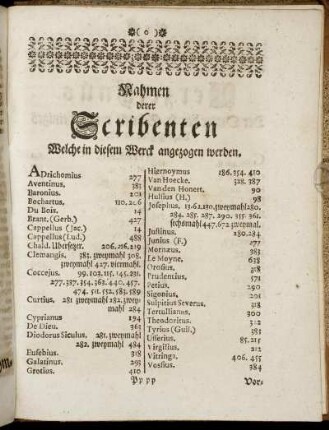 ( o )
Nahmen
derer
Scribenten
Welche in diesem Werck angezogen werden.
ADrichomius 277
Aventinus. 381
Baronius. 201
Bochartus, 110. 206
Du Bois. 14
Brant. (Gerh.) 427
Cappellus (Jac.) 14
Cappellus (Lud.) 488
Chald. Ubersetzer. 206. 216. 219
Clemangis. 382. zweymahl 308.
zweymahl 427. viermahl.
Coccejus. 99. 103. 115. 145. 231.
277. 337. 354. 362. 440. 457.
474. 51. 552. 583. 589
Curtius. 281 zweymahl 282. zwey-
mahl 284
Cyprianus 194
De Dieu. 361
Diodorus Siculus. 281. zweymahl
282. zweymahl 484
Eusebius. 318
Galatinus. 293
Grotius. 410
Hieronymus 186. 254. 410
Van Hoecke. 328. 387
Van den Honert. 90
Hulsius (H.) 98
Josephus. 15. 62. 150. zweymahl 280.
284. 285. 287. 290. 355. 361.
sechsmahl 447. 672. zweymal.
Justinus. 180. 284.
Junius (F.) 277
Mornæus. 983
Le Moyne. 638
Orosius. 318
Prudentius. 571
Petius. 290
Sigonius. 201
Sulpitius Severus. 318
Tertullianus. 300
Theodoritus. 312
Tyrius (Guil.) 385
Usserius. 85. 215
Virgilius. 212
Vitringa. 406. 455
Vossius. 384
Pppp Vor-